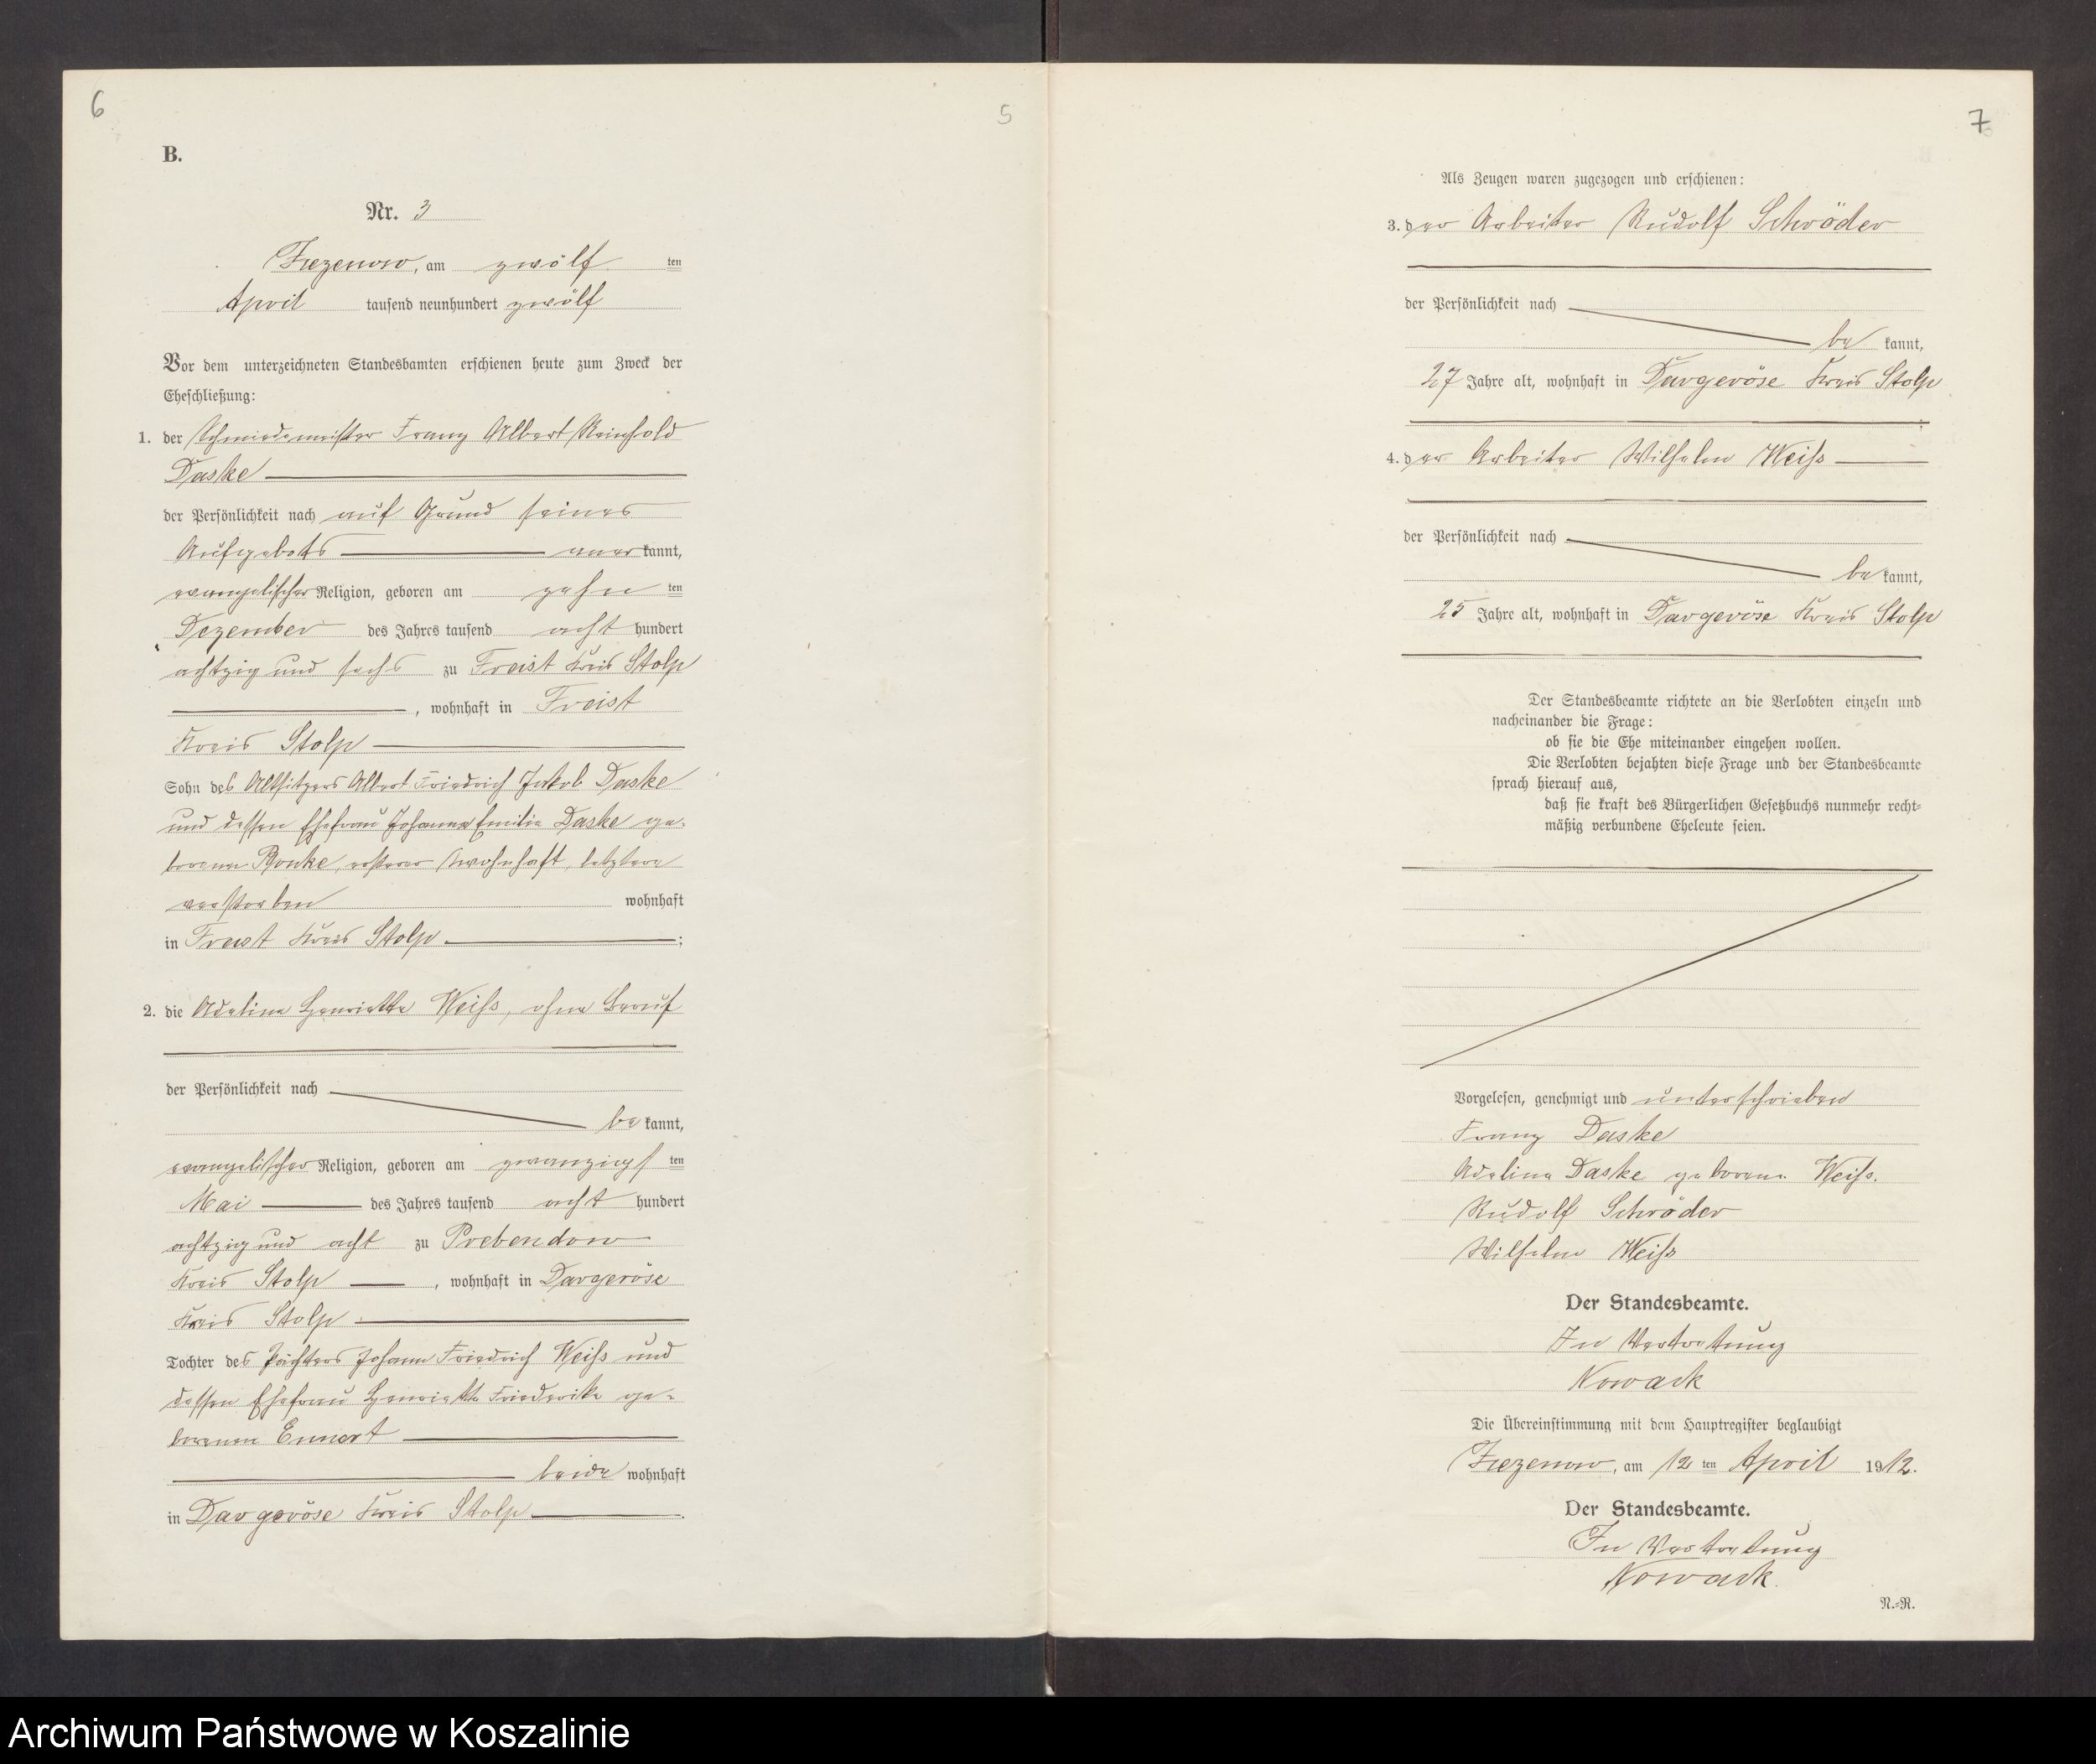 6
5
B.
Nr. 3
Zezenow, am zwölf ten
April tausend neunhundert zwölf
Vor dem unterzeichneten Standesbamten erschienen heute zum Zweck der
Eheschließung:
1. der Schmiedemeister Franz Albert Reinhold
Daske
der Persönlichkeit nach auf Grund seines
Aufgebots aner kannt,
evangelischer Religion, geboren am zehn ten
Dezember des Jahres tausend acht hundert
achtzig und sechs zu Freist Kreis Stolp
, wohnhaft in Freist
Kreis Stolp
Sohn des Altsitzers Albert Friedrich Jakob Daske
und dessen Ehefrau Johanna Emilie Daske ge-
borenen ersterer wohnhaft, letztere
verstorben wohnhaft
in Freist Kreis Stolp ;
2. die Adeline Henriette Weiß, ohne Beruf
der Persönlichkeit nach
be kannt,
evangelischer Religion, geboren am zwanzigs ten
Mai des Jahres tausend acht hundert
achtzig und acht zu Prebendow
Kreis Stolp , wohnhaft in Dargeröse
Kreis Stolp
Tochter des Pächters Johann Friedrich Weiß und
dessen Ehefrau Henriette Friederike ge-
borenen Ennert
beide wohnhaft
in Dargeröse Kreis Stolp .
7
Als Zeugen waren zugezogen und erschienen:
3. der Arbeiter Rudolf Schröder
der Persönlichkeit nach
be kannt,
27 Jahre alt, wohnhaft in Dargeröse Kreis Stolp
;
4. der Arbeiter Wilhelm Weiß
der Persönlichkeit nach
be kannt,
25 Jahre alt, wohnhaft in Dargeröse Kreis Stolp
Der Standesbeamte richtete an die Verlobten einzeln und
nacheinander die Frage:
ob sie die Ehe miteinander eingehen wollen.
Die Verlobten bejahten diese Frage und der Standesbeamte
sprach hierauf aus,
daß sie kraft des Bürgerlichen Gesetzbuchs nunmehr recht-
mäßig verbundene Eheleute seien.
Vorgelesen, genehmigt und unterschrieben
Franz Daske
Adeline Daske geborene Weiß.
Rudolf Schröder
Wilhelm Weiß
Der Standesbeamte.
In Vertretung
Nowack
Die Übereinstimmung mit dem Hauptregister beglaubigt
Zezenow, am 12 ten April 1912.
Der Standesbeamte.
In Vertretung
Nowack.
N.-R.
Archiwum Państwowe w Koszalinie